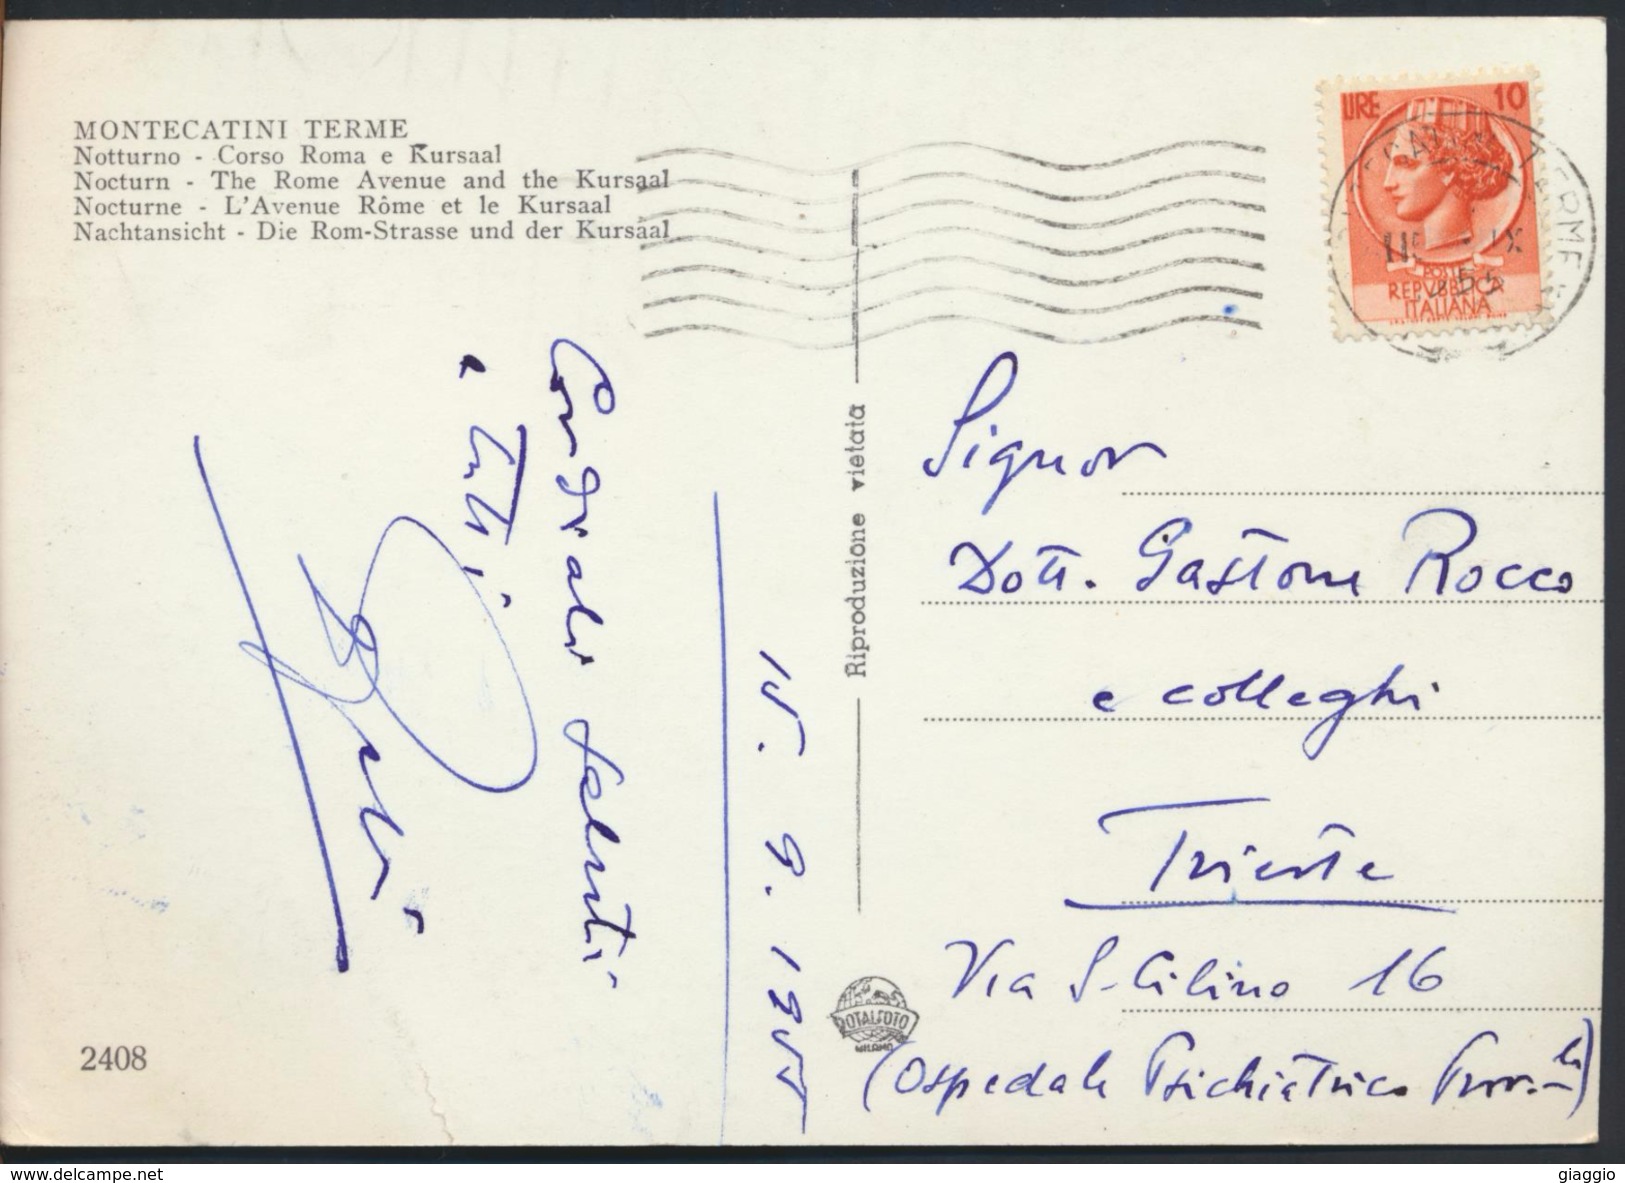 MONTECATINI TERME
Notturno - Corso Roma e Kursaal
Nocturn - The Rome Avenue and the Kursaal
Nocturne - L'Avenue Rôme et le Kursaal
Nachtansicht - Die Rom-Strasse und der Kursaal
LIRE 10
POSTE
REPVBBLICA
ITALIANA
TERME
55
Cordiali saluti
a tutti
15. 9. 1955
Riproduzione vietata
Signor
Dott. Gastone Rocco
e colleghi
Trieste
Via S. Cilino 16
(Ospedale Psichiatrico Prov.le)
ROTALFOTO
MILANO
2408
www.delcampe.net
giaggio